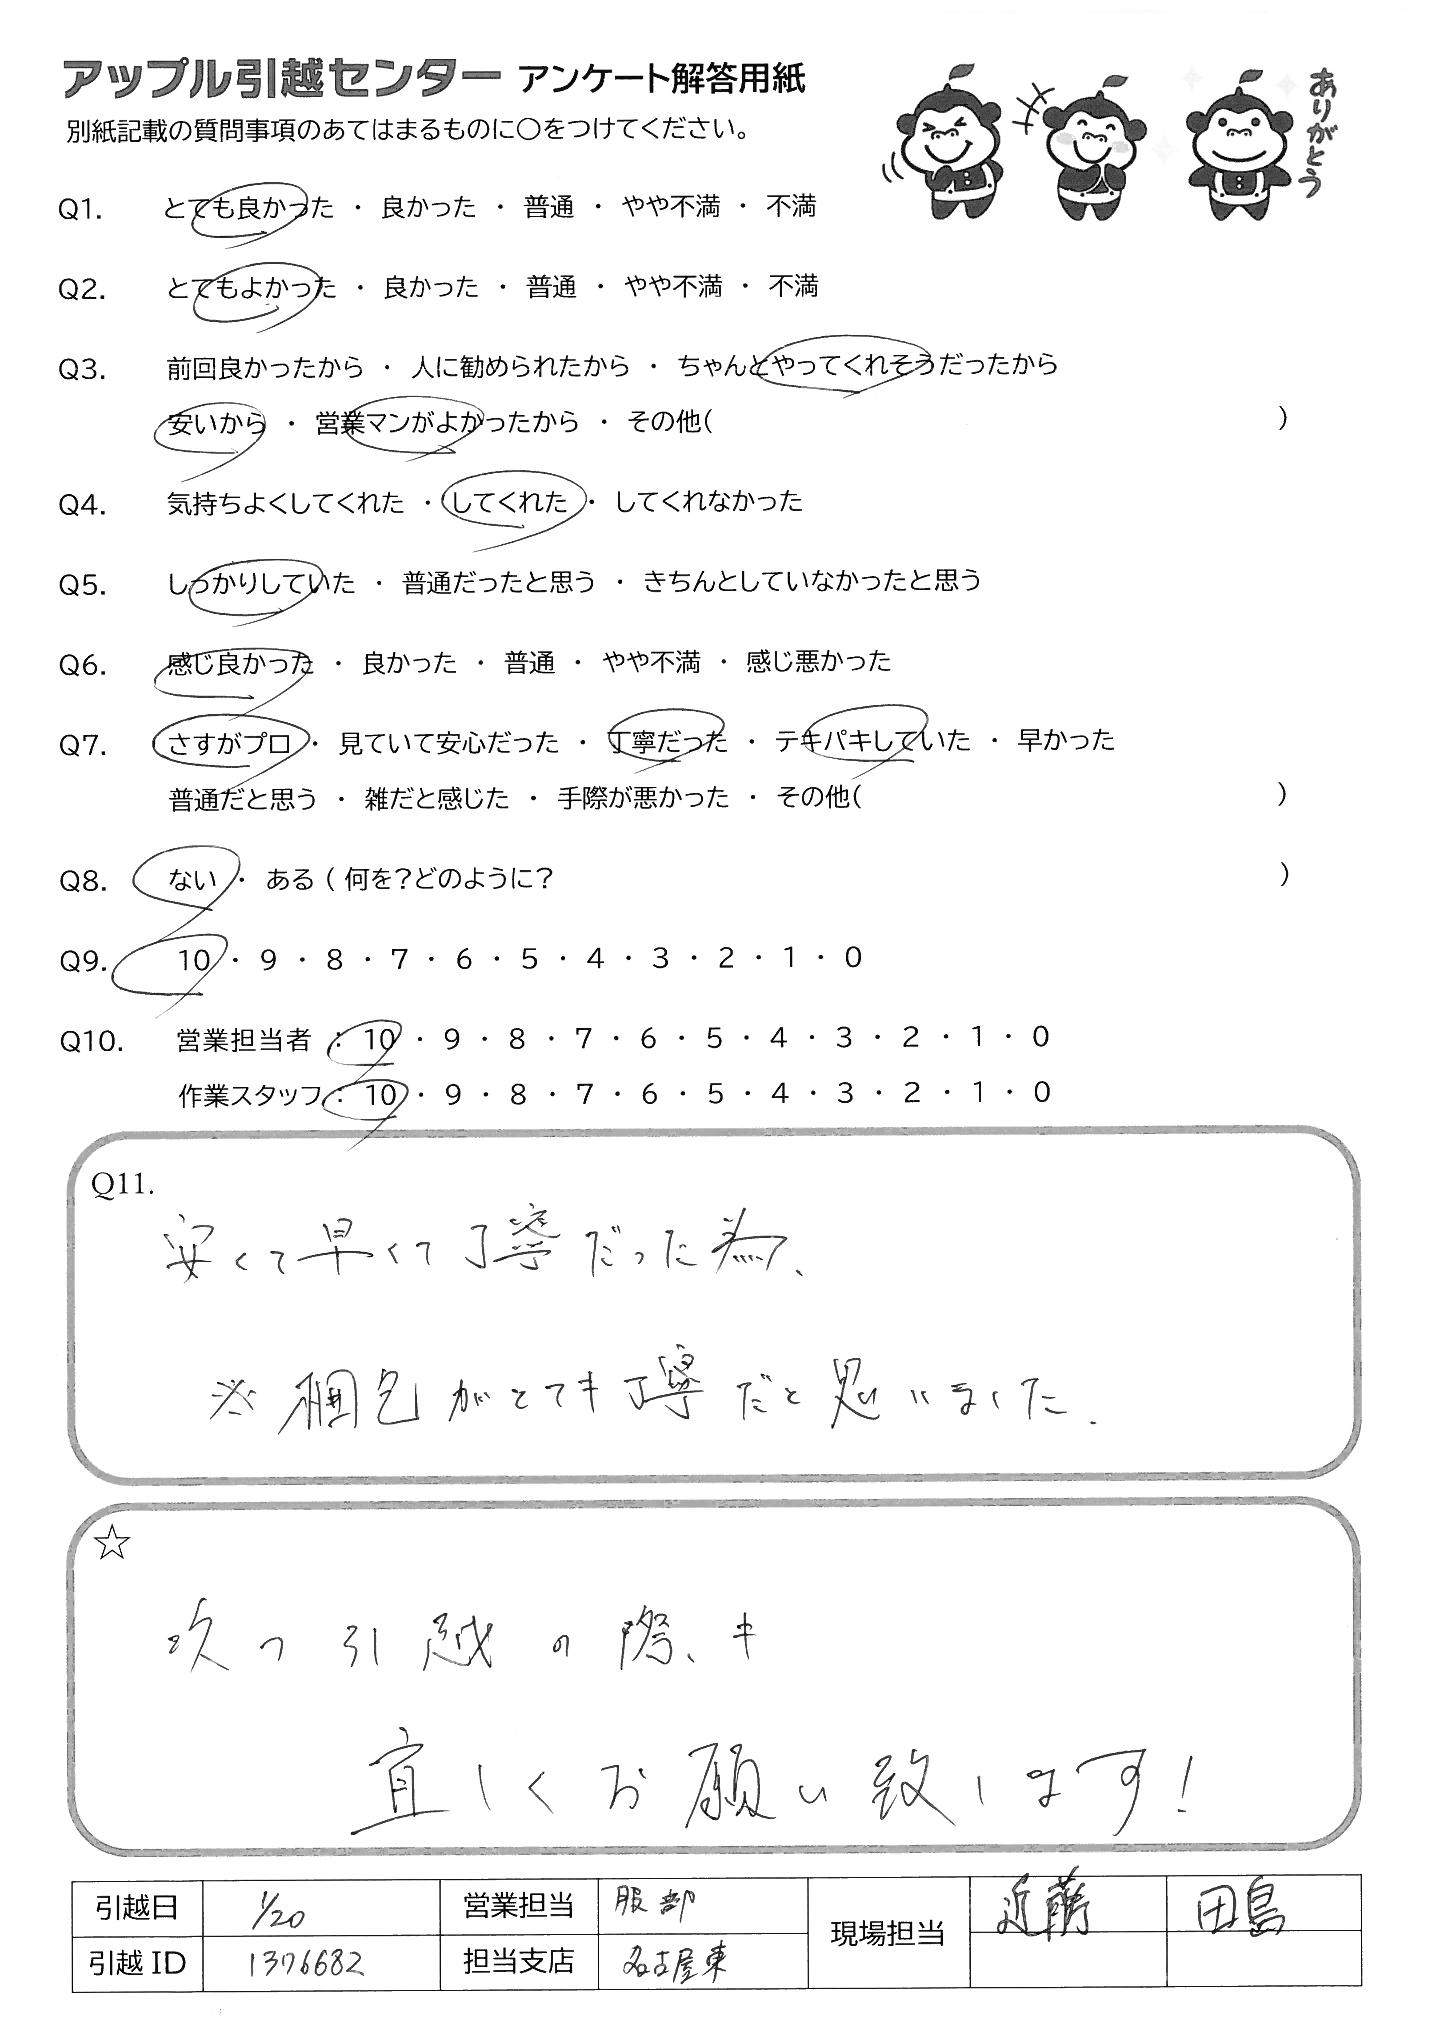 アップル引越センター アンケート解答用紙
ありがとう
別紙記載の質問事項のあてはまるものに〇をつけてください。
Q1. とても良かった ・ 良かった ・ 普通 ・ やや不満 ・ 不満
Q2. とてもよかった ・ 良かった ・ 普通 ・ やや不満 ・ 不満
Q3. 前回良かったから ・ 人に勧められたから ・ ちゃんとやってくれそうだったから
安いから ・ 営業マンがよかったから ・ その他( )
Q4. 気持ちよくしてくれた ・ してくれた ・ してくれなかった
Q5. しっかりしていた ・ 普通だったと思う ・ きちんとしていなかったと思う
Q6. 感じ良かった ・ 良かった ・ 普通 ・ やや不満 ・ 感じ悪かった
Q7. さすがプロ ・ 見ていて安心だった ・ 丁寧だった ・ テキパキしていた ・ 早かった
普通だと思う ・ 雑だと感じた ・ 手際が悪かった ・ その他( )
Q8. ない ・ ある ( 何を?どのように? )
Q9. 10 ・ 9 ・ 8 ・ 7 ・ 6 ・ 5 ・ 4 ・ 3 ・ 2 ・ 1 ・ 0
Q10. 営業担当者 : 10 ・ 9 ・ 8 ・ 7 ・ 6 ・ 5 ・ 4 ・ 3 ・ 2 ・ 1 ・ 0
作業スタッフ : 10 ・ 9 ・ 8 ・ 7 ・ 6 ・ 5 ・ 4 ・ 3 ・ 2 ・ 1 ・ 0
Q11.
安くて早くて丁寧だった為、
※梱包がとても丁寧だと思いました.
☆
次の引越の際、も
宜しくお願い致します!
引越日 1/20 営業担当 服部 現場担当 近藤 田島
引越ID 1376682 担当支店 名古屋東